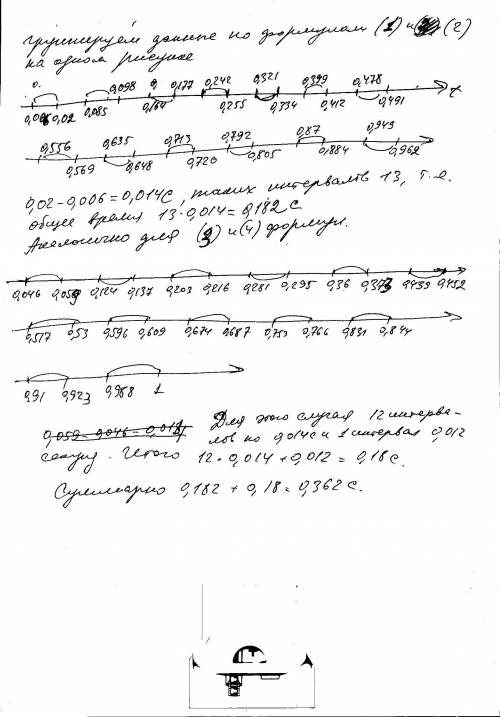 группируем данные по формулам (1) и (2)
на одном рисунке
0,098 0,177 0,242 0,321 0,399 0,478
0,006 0,02 0,085 0,164 0,255 0,334 0,412 0,491 t
0,556 0,635 0,713 0,792 0,87 0,949
0,569 0,648 0,720 0,805 0,884 0,962
0,02 - 0,006 = 0,014 с, таких интервалов 13, т.е.
общее время 13 · 0,014 = 0,182 с
Аналогично для (3) и (4) формул.
0,046 0,059 0,124 0,137 0,203 0,216 0,281 0,295 0,36 0,373 0,439 0,452
0,517 0,53 0,596 0,609 0,674 0,687 0,753 0,766 0,831 0,844
0,91 0,923 0,988 1
0,059 - 0,046 = 0,013 Для этого случая 12 интерва-
лов по 0,014 с и 1 интервал 0,012
секунд. Итого 12 · 0,014 + 0,012 = 0,18 с.
Суммарно 0,182 + 0,18 = 0,362 с.